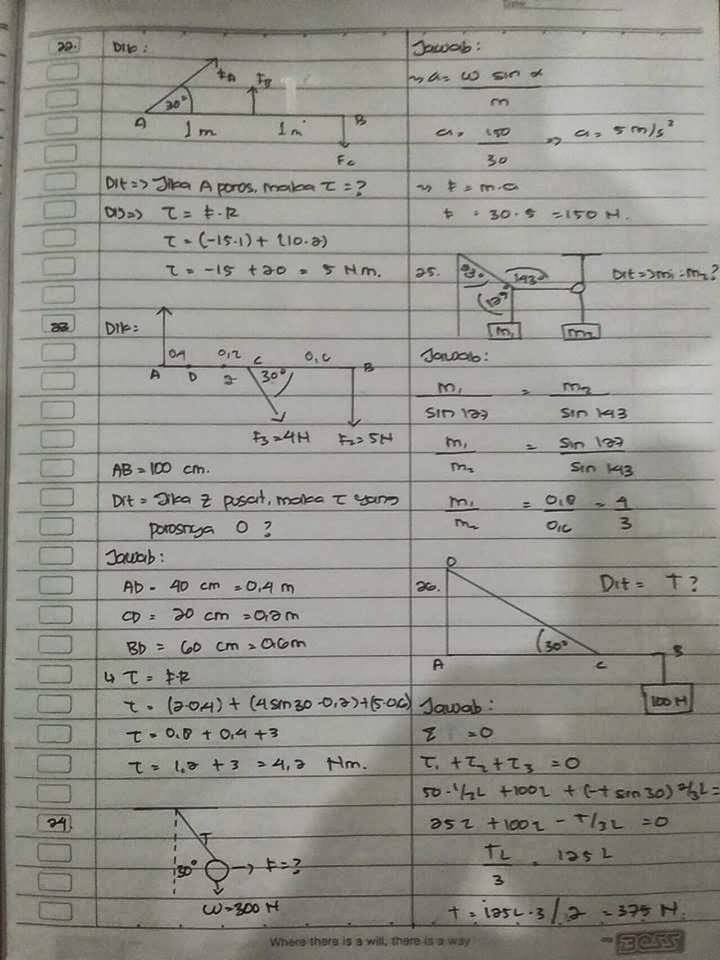 22.
Dik:
FA
FB
30°
A
1 m
1 m
B
FC
Dit => Jika A poros, maka τ = ?
Dij => τ = F.R
τ = (-15.1) + (10.2)
τ = -15 + 20 = 5 Nm.
23
Dik:
0,4
0,2
C
0,6
A
D
Z
30°
B
F3 = 4N
F2 = 5N
AB = 100 cm.
Dit = Jika Z pusat, maka τ yang
porosnya O ?
Jawab:
AD = 40 cm = 0,4 m
CD = 20 cm = 0,2 m
BD = 60 cm = 0,6 m
↳ τ = F.R
τ = (2.0,4) + (4 sin 30 . 0,2) + (5.0,6)
τ = 0,8 + 0,4 + 3
τ = 1,2 + 3 = 4,2 Nm.
24.
T
30°
F = ?
W = 300 N
Jawab:
a = w sin α
m
a = 150 => a = 5 m/s²
30
F = m.a
F = 30.5 = 150 N.
25.
143°
127
Dit => m1 : m2 ?
m1
m2
Jawab:
m1 = m2
sin 127 sin 143
m1 = sin 127
m2 sin 143
m1 = 0,8 = 4
m2 0,6 3
26.
D
Dit = T ?
30°
A
C
B
100 N
Jawab:
Σ = 0
τ1 + τ2 + τ3 = 0
50.1/2L + 100L + (-T sin 30) 2/3L =
25L + 100L - T/3L = 0
TL = 125L
3
T = 125L.3/2 = 375 N.
Where there is a will, there is a way